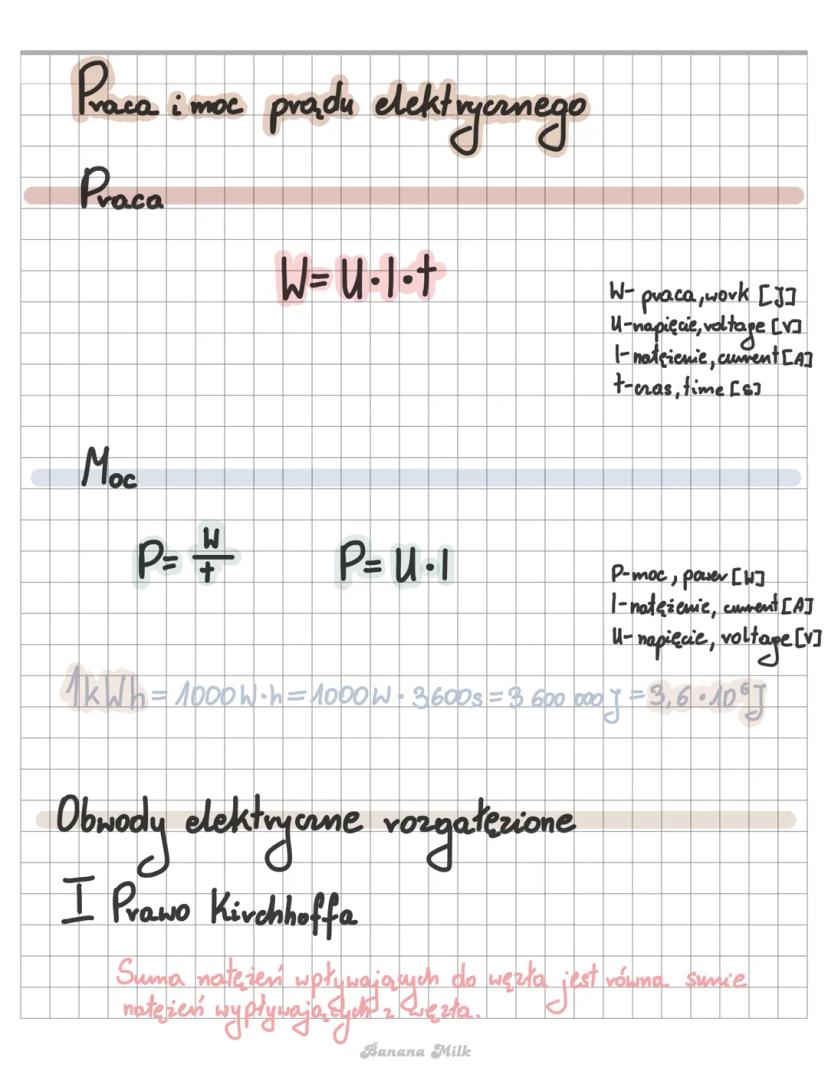 Praca i moc prądu elektrycznego
Praca
W= U·I·t
W- praca, work [J]
U-napięcie, voltage [V]
I-natężenie, current [A]
t-czas, time [s]
Moc
P= W/t
P= U·I
P-moc, power [W]
I-natężenie, current [A]
U-napięcie, voltage [V]
1kWh = 1000W·h = 1000W · 3600s = 3 600 000 J = 3,6 · 10⁶ J
Obwody elektryczne rozgałęzione
I Prawo Kirchhoffa
Suma natężeń wpływających do węzła jest równa sumie
natężeń wypływających z węzła.
Banana Milk